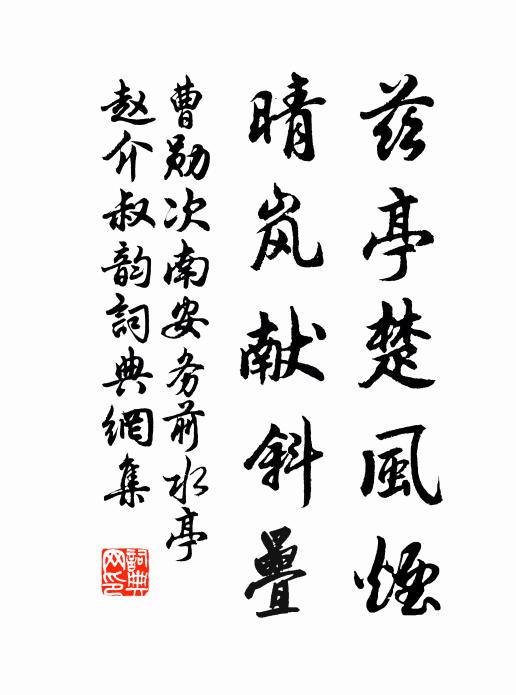 兹亭楚風煙
晴岚献斜疊
曹勛次南安务前水亭
赵介叔韵詞典網集
詞典网印